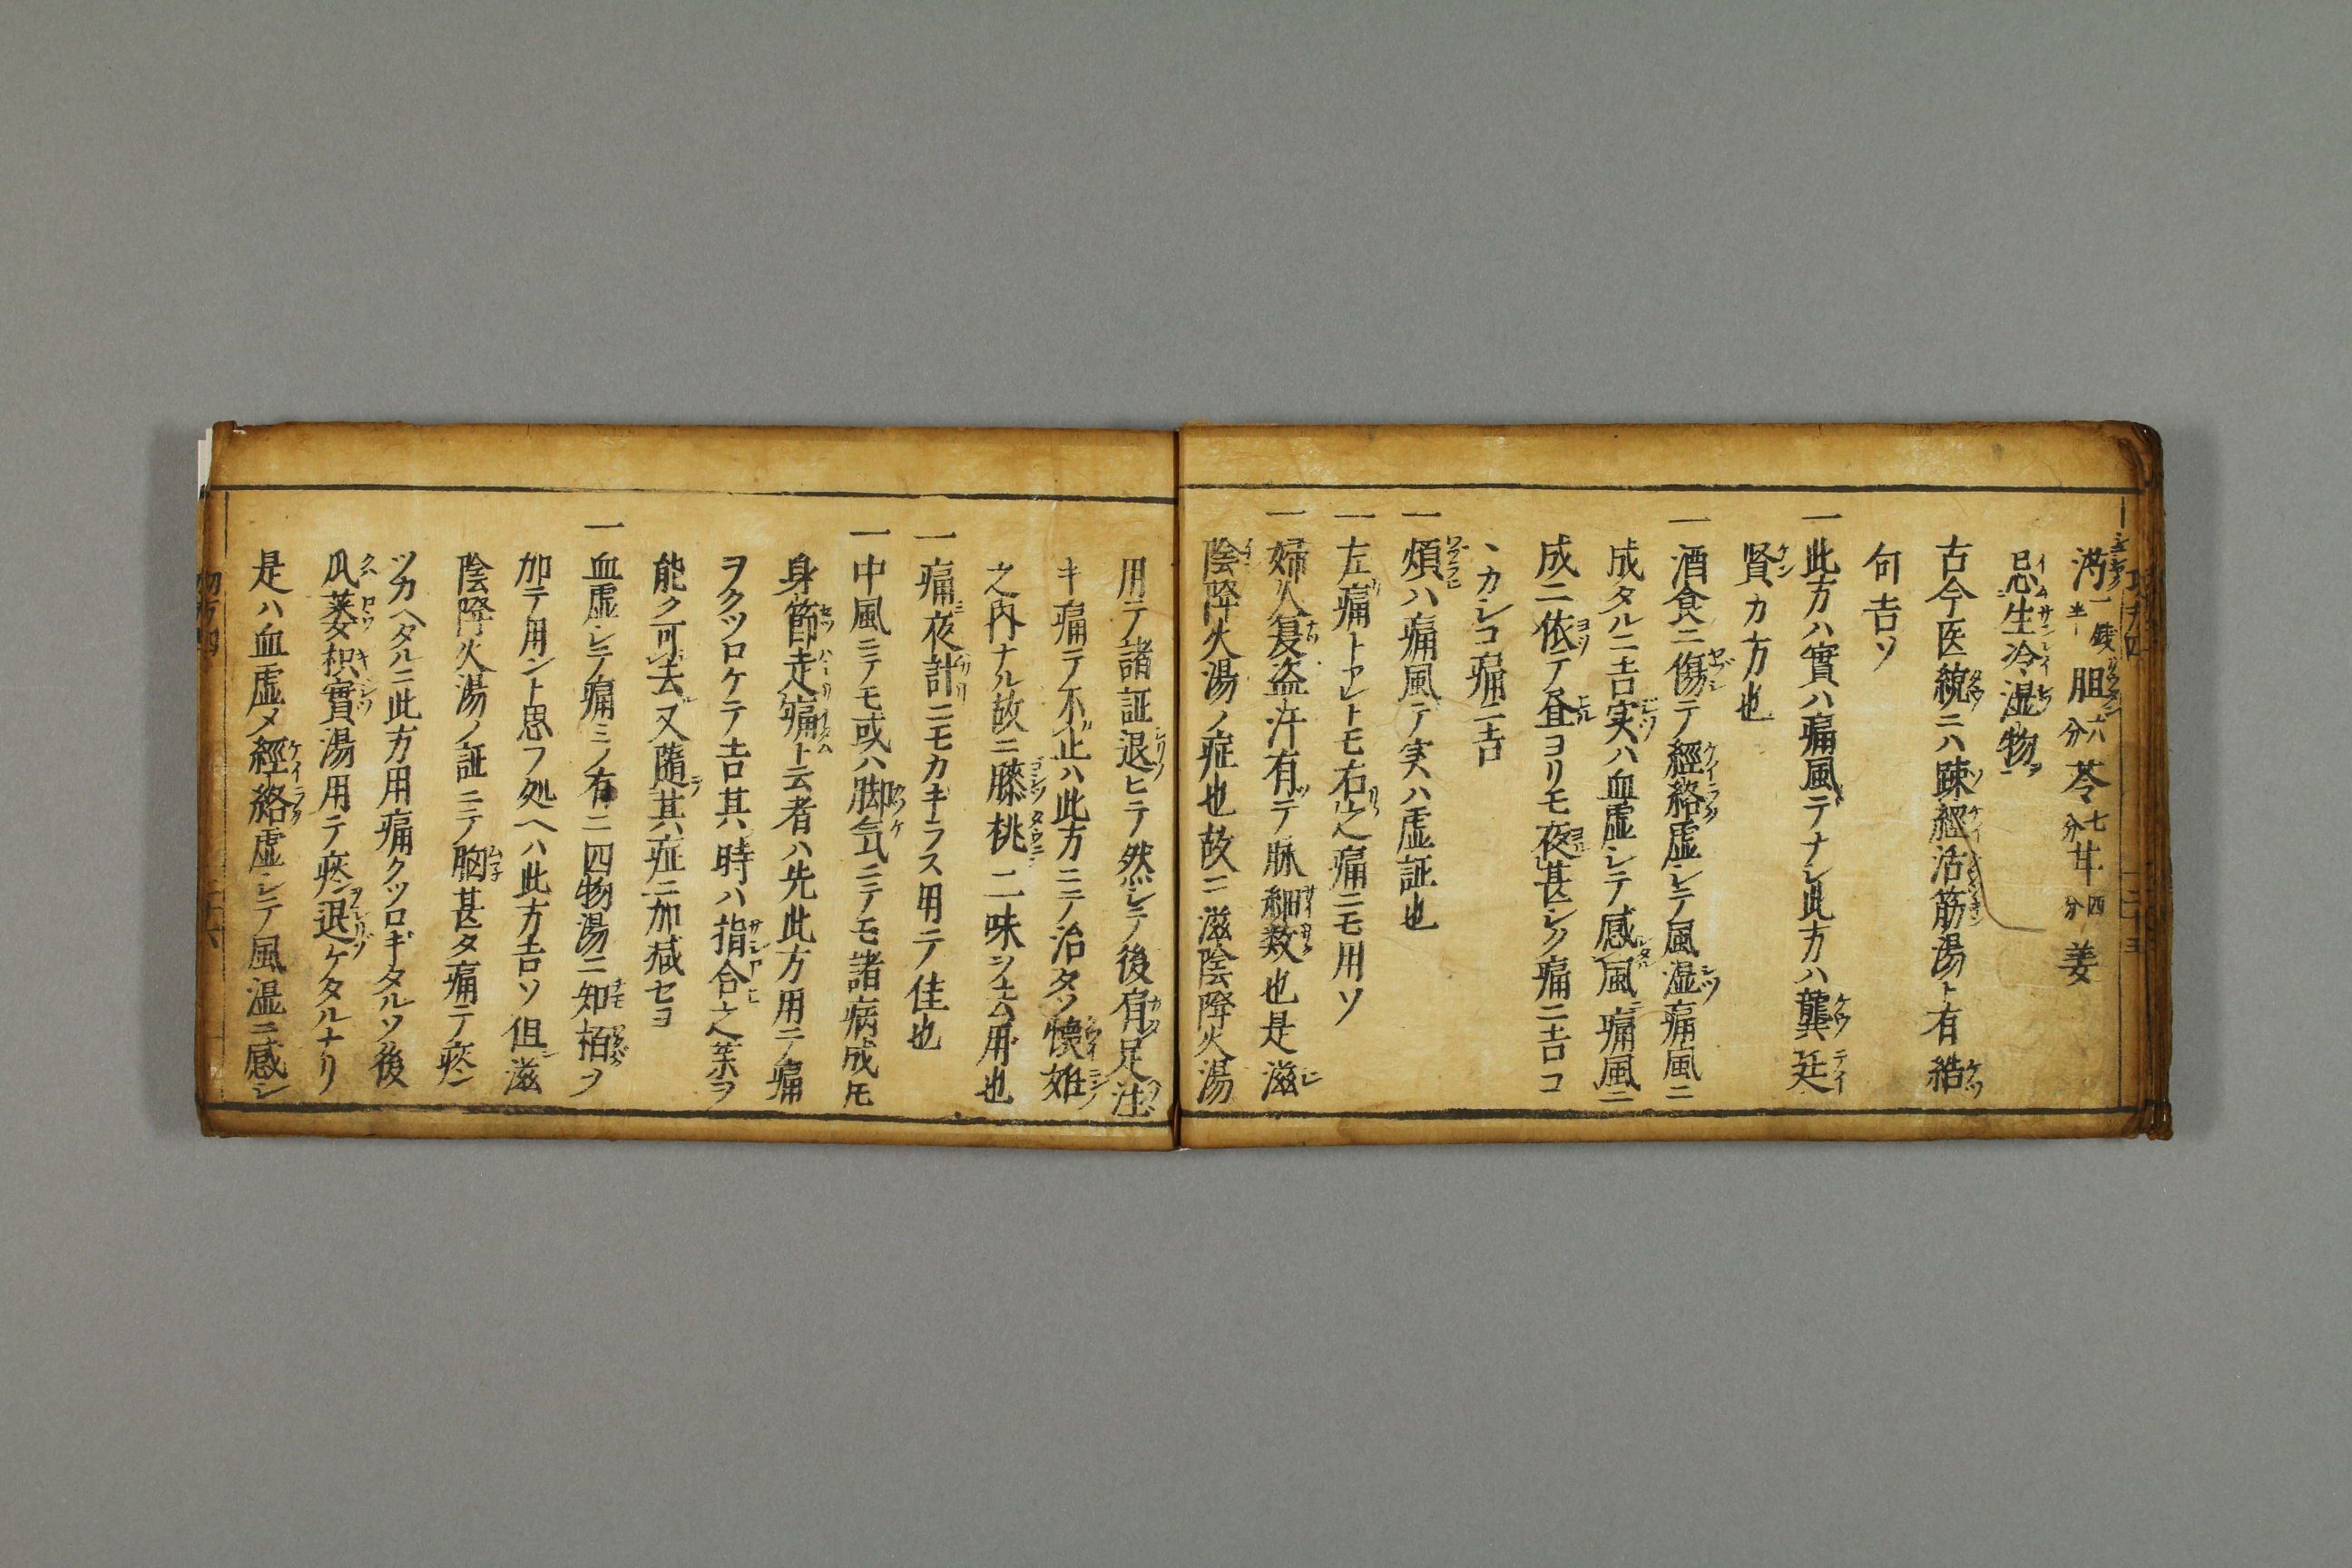 芍一銭半胆六分苓七分甘四分姜
忌生冷湿物ヲ
古今医統ニハ踈經活筋湯ト有結
句吉ソ
一此方ハ實ハ痛風デナシ此方ハ龔廷
賢カ方也
一酒食ニ傷テ經絡虚シテ風湿痛風ニ
成タルニ吉実ハ血虚シテ感風痛風ニ
成ニ依テ昼ヨリモ夜甚シク痛ニ吉コ
ヽカシコ痛ニ吉
一煩ハ痛風テ実ハ虚証也
一左痛トセレトモ右之痛ニモ用ソ
一婦人寝盗汗有テ脉細数也是滋
陰降火湯ノ症也故ニ滋陰降火湯
用テ諸証退ヒテ然シテ後肩足注
キ痛テ不止ハ此方ニテ治タソ懐妊
之内ナル故ニ膝桃二味ヲ去用也
一痛夜計ニモカキラス用テ佳也
一中風ニテモ或ハ脚気ニテモ諸病成モ
身節走痛ト云者ハ先此方用テ痛
ヲクツロケテ吉其時ハ指合之薬ヲ
能ク可去又隨其症ニ加减セヨ
一血虚シテ痛ミノ有ニ四物湯ニ知栢ヲ
加テ用ント思フ処ヘハ此方吉ソ但滋
陰降火湯ノ証ニテ胸甚タ痛テ痰
ツカヘタルニ此方用痛クツロギタルソ後
瓜蔞枳實湯用テ痰退ケタルナリ
是ハ血虚メ經絡虚シテ風湿ニ感シ